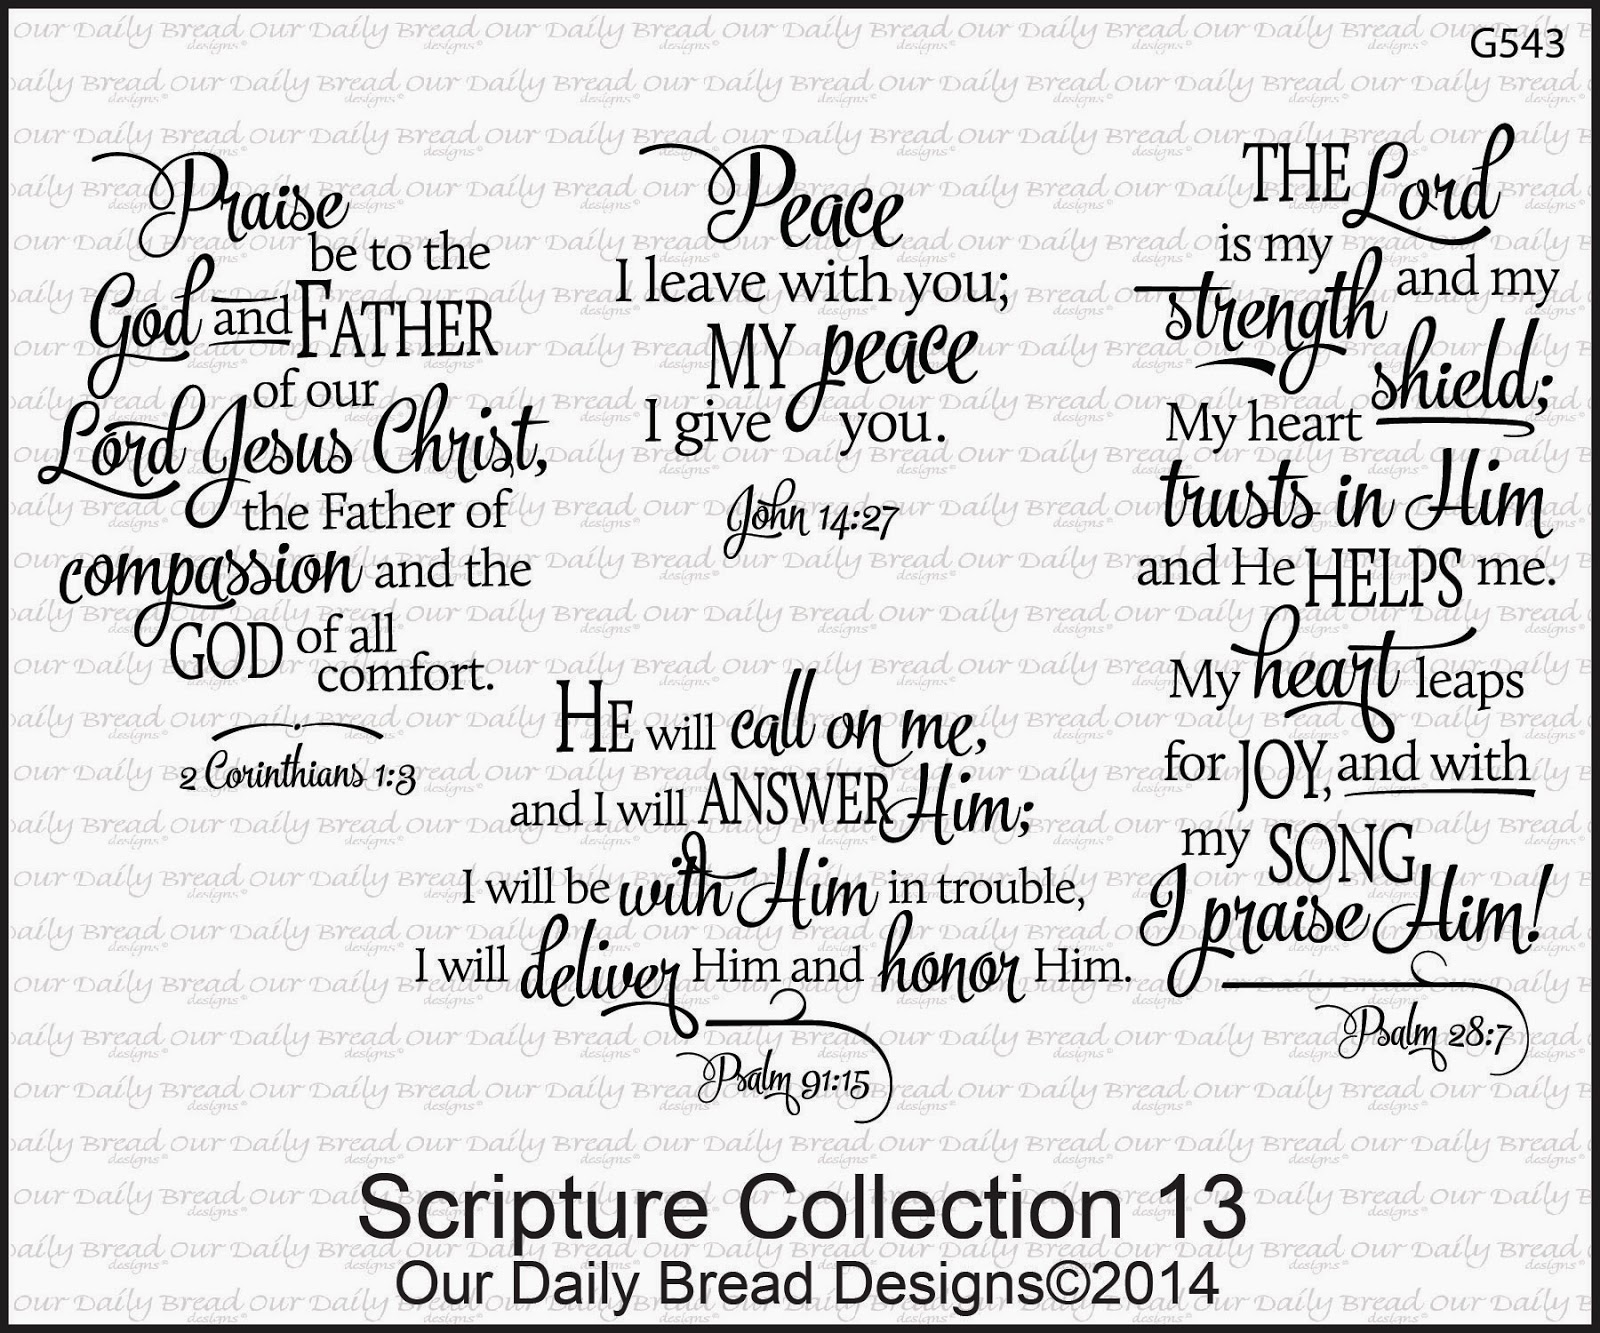 G543
Praise
be to the
God and FATHER
of our
Lord Jesus Christ,
the Father of
compassion and the
GOD of all
comfort.
2 Corinthians 1:3
Peace
I leave with you;
MY peace
I give you.
John 14:27
THE Lord
is my
strength and my
shield;
My heart
trusts in Him
and He HELPS me.
My heart leaps
for JOY, and with
my SONG
I praise Him!
Psalm 28:7
HE will call on me,
and I will ANSWER Him;
I will be with Him in trouble,
I will deliver Him and honor Him.
Psalm 91:15
Scripture Collection 13
Our Daily Bread Designs©2014